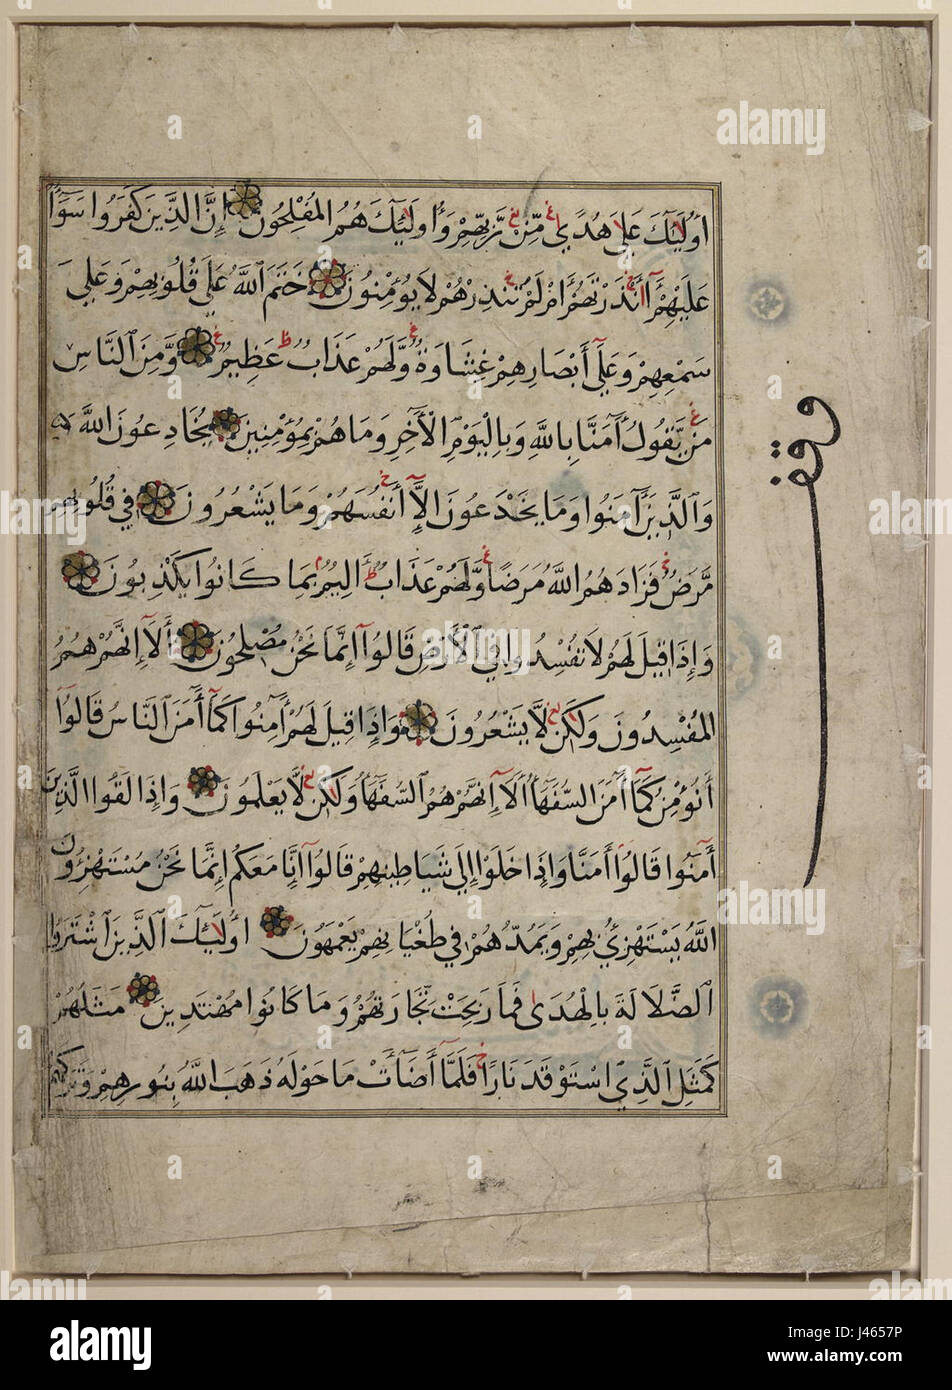 أُولَٰئِكَ عَلَىٰ هُدًى مِّن رَّبِّهِمْ وَأُولَٰئِكَ هُمُ الْمُفْلِحُونَ إِنَّ الَّذِينَ كَفَرُوا سَوَآءٌ
عَلَيْهِمْ أَأَنذَرْتَهُمْ أَمْ لَمْ تُنذِرْهُمْ لَا يُؤْمِنُونَ خَتَمَ اللَّهُ عَلَىٰ قُلُوبِهِمْ وَعَلَىٰ
سَمْعِهِمْ وَعَلَىٰ أَبْصَارِهِمْ غِشَاوَةٌ وَلَهُمْ عَذَابٌ عَظِيمٌ وَمِنَ النَّاسِ
مَن يَقُولُ آمَنَّا بِاللَّهِ وَبِالْيَوْمِ الْآخِرِ وَمَا هُم بِمُؤْمِنِينَ يُخَادِعُونَ اللَّهَ
وَالَّذِينَ آمَنُوا وَمَا يَخْدَعُونَ إِلَّا أَنفُسَهُمْ وَمَا يَشْعُرُونَ فِي قُلُوبِهِم
مَّرَضٌ فَزَادَهُمُ اللَّهُ مَرَضًا وَلَهُمْ عَذَابٌ أَلِيمٌ بِمَا كَانُوا يَكْذِبُونَ
وَإِذَا قِيلَ لَهُمْ لَا تُفْسِدُوا فِي الْأَرْضِ قَالُوا إِنَّمَا نَحْنُ مُصْلِحُونَ أَلَا إِنَّهُمْ هُمُ
الْمُفْسِدُونَ وَلَٰكِن لَّا يَشْعُرُونَ وَإِذَا قِيلَ لَهُمْ آمِنُوا كَمَا آمَنَ النَّاسُ قَالُوا
أَنُؤْمِنُ كَمَا آمَنَ السُّفَهَاءُ أَلَا إِنَّهُمْ هُمُ السُّفَهَاءُ وَلَٰكِن لَّا يَعْلَمُونَ وَإِذَا لَقُوا الَّذِينَ
آمَنُوا قَالُوا آمَنَّا وَإِذَا خَلَوْا إِلَىٰ شَيَاطِينِهِمْ قَالُوا إِنَّا مَعَكُمْ إِنَّمَا نَحْنُ مُسْتَهْزِئُونَ
اللَّهُ يَسْتَهْزِئُ بِهِمْ وَيَمُدُّهُمْ فِي طُغْيَانِهِمْ يَعْمَهُونَ أُولَٰئِكَ الَّذِينَ اشْتَرَوُا
الضَّلَالَةَ بِالْهُدَىٰ فَمَا رَبِحَتْ تِجَارَتُهُمْ وَمَا كَانُوا مُهْتَدِينَ مَثَلُهُمْ
كَمَثَلِ الَّذِي اسْتَوْقَدَ نَارًا فَلَمَّا أَضَاءَتْ مَا حَوْلَهُ ذَهَبَ اللَّهُ بِنُورِهِمْ وَتَرَكَهُمْ
وقف
alamy
alamy
Image ID: J4657P
www.alamy.com